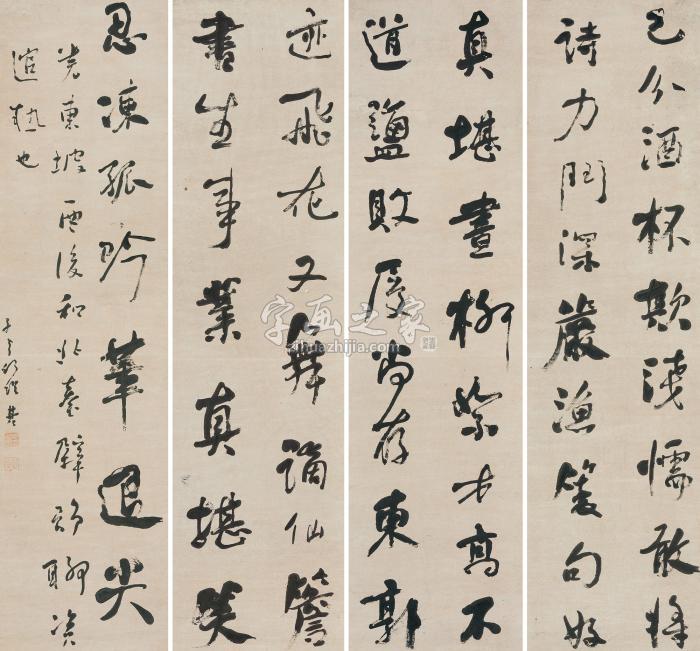 已分酒杯欺淺懦敢將
詩力鬥深嚴漁蓑句好
真堪畫柳絮才高不
道鹽敗履尚存東郭
迹飛花又舞謫仙簷
書生事業真堪笑
忍凍孤吟筆退尖
東坡雪後和北臺壁韵聊資
也
字画之家
zihuazhijia.com